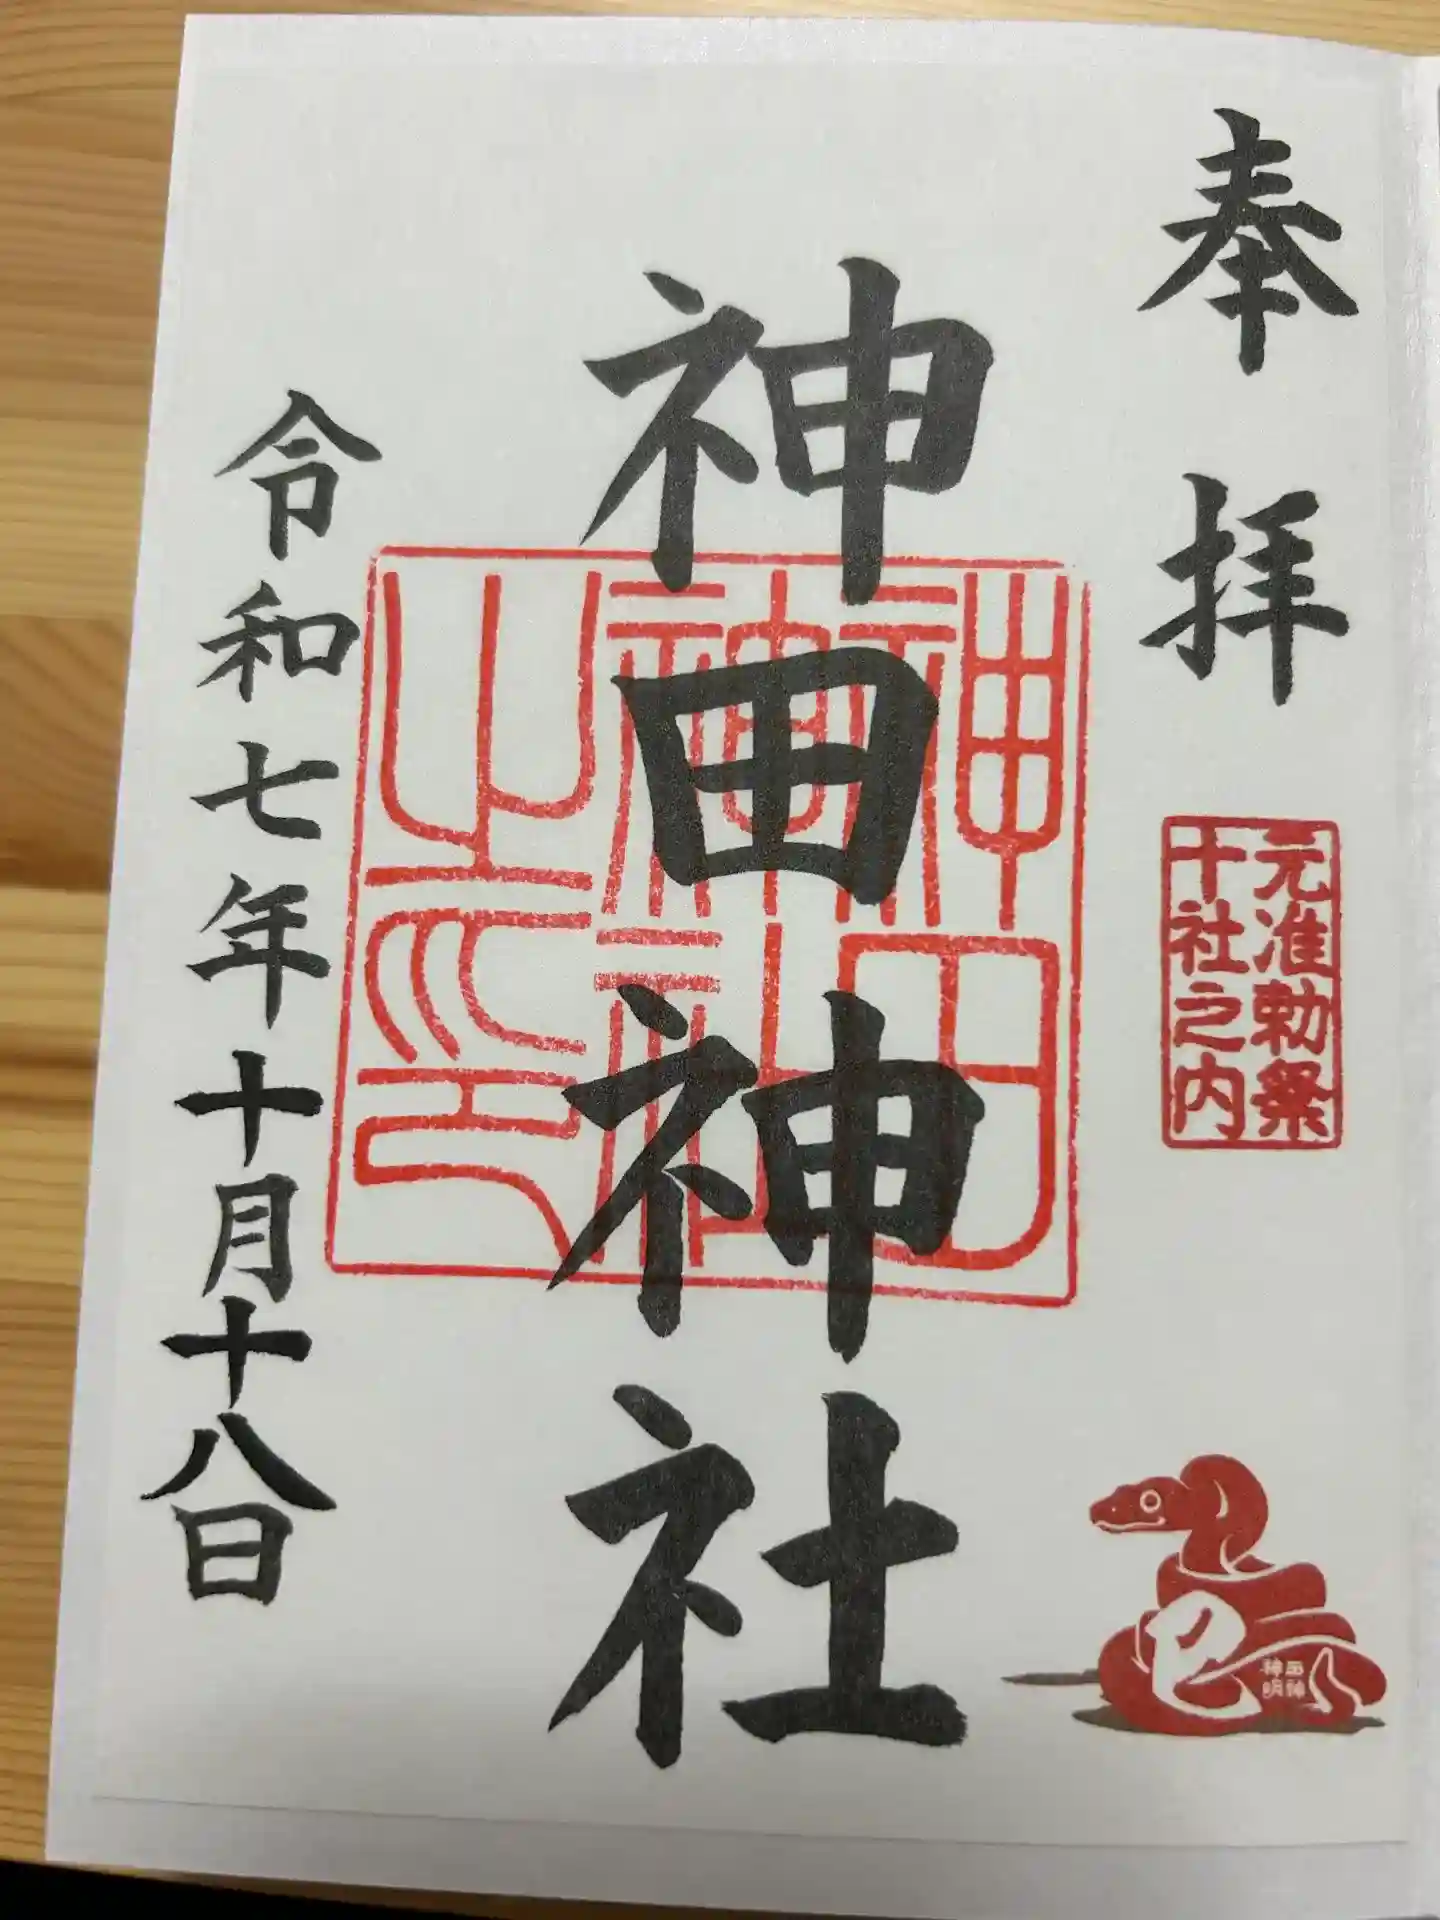 奉拝
元准勅祭
十社之内
巳
神田神社
神田神社
神社
之印
令和七年十月十八日